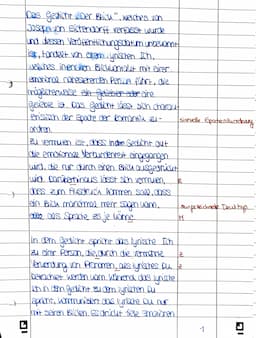 Das Gedicht „Der Blick", welches von
Joseph von Eichendorff verfasst wurde
und dessen Veröffentlichungsdatum unbekannt
ist, handelt von einem lyrischen Ich,
welches intensiven Blickkontakt mit einer
emotional nahestehenden Person führt, die
möglicherweise ein Geliebter oder eine
Geliebte ist. Das Gedicht lässt sich
der Epoche der Romantik zu-
ordnen.
Zu vermuten ist, dass Gedicht auf
die emotionale Verbundenheit eingegangen
wird, die nur durch einen Blick ausgedrückt
wird. Darüberhinaus lässt sich vermuten,
dass zum Ausdruck kommen soll, dass
ein Blick manchmal mehr sagen kann,
als Sprache es je könne.
R
M
In dem Gedicht spricht das lyrische Ich
zu einer Person, die durch die
Verwendung von Pronomen, als lyrisches Du
betrachtet werden kann. Während das lyrische
Ich in dem Gedicht zu dem lyrischen Du
spricht, kommuniziert das lyrische Du nur
mit seinen Blicken. Es drückt seine Emotionen
1